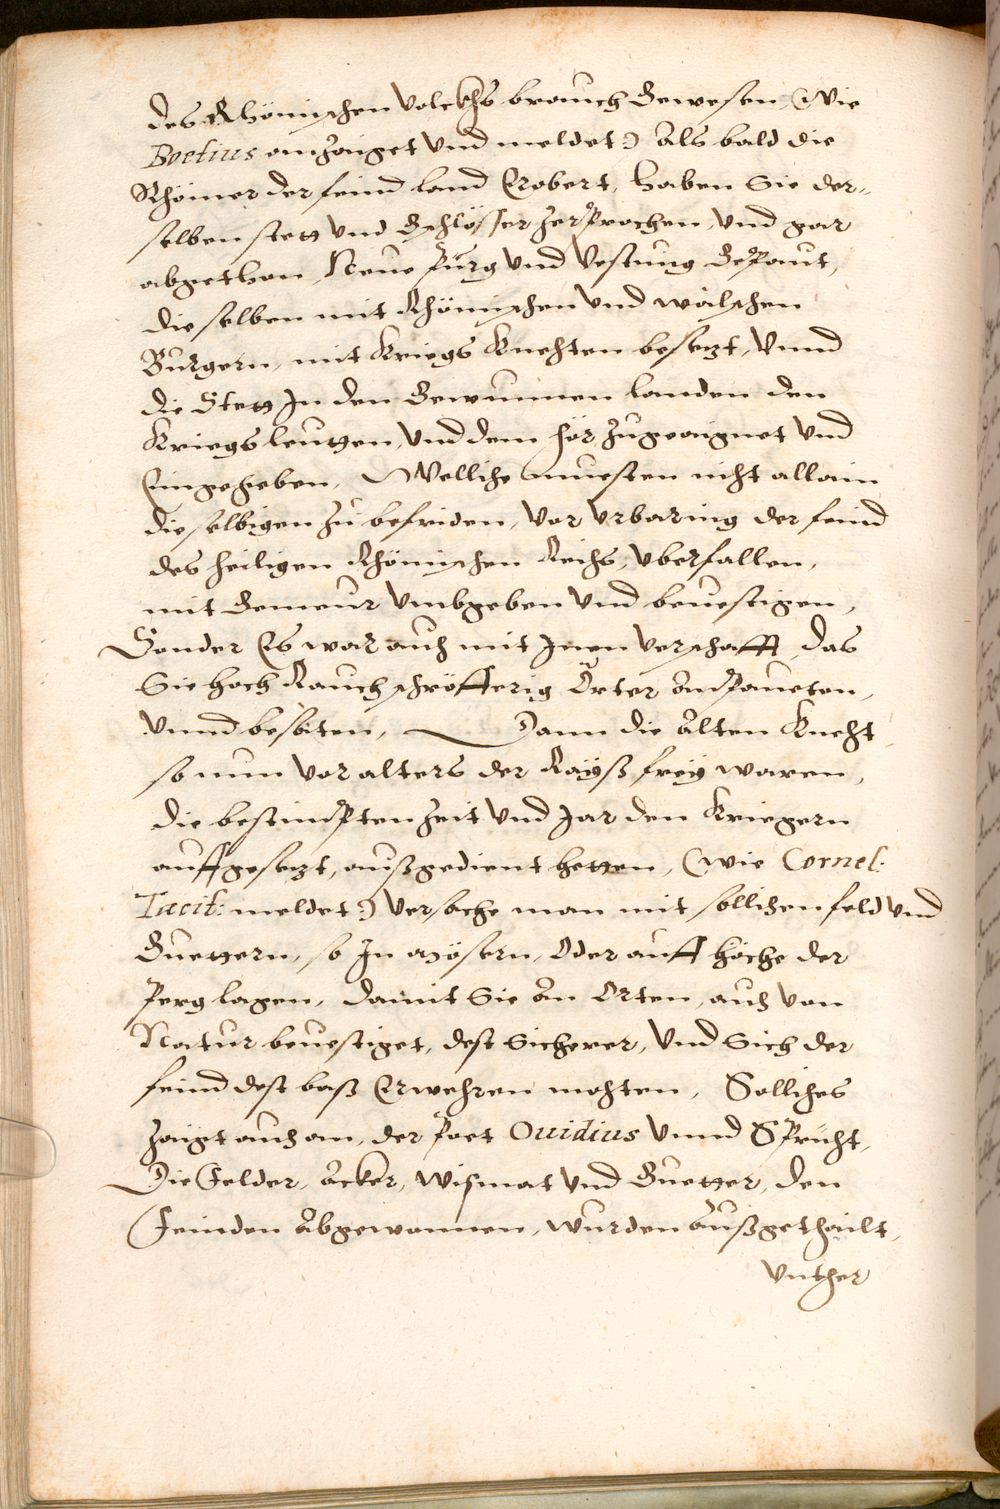 des Rhömischen volckhs brauch Gewesen, (Wie
Boetius anzaiget vnd meldet:) Als bald die
Rhömer der feind land Erobert, haben Sie der-
selben stett vnd Schlösser zerprochen, vnd gar
abgethon, Neue purg vnd Vestung Gepaut,
die selben mit Rhömischen vnd wälschen
Burgern, mit Kriegs Knehten besetzt, Vnnd
die Stett In den Gewunnen landen den
Kriegsleutten, vnd dem hör zugeaignet vnd
Eingegeben, Welliche muesten niht allain
die selbigen zu befriden, vor vrbaring der feind
des heiligen Rhömischen Reihs, vberfallen,
mit Gemeur vmbgeben vnd beuestigen,
Sonder Es war auch mit Inen verschafft, das
Sie hoch Rauch schröfferig Örter anpaueten,
Vnnd besäten, Dann die Alten Kneht,
so nun vor alters der Rayß frey waren,
die bestimpten zeit vnd Jar den Kriegern
auffgesetzt, außgedient hetten, (wie Cornel:
Tacit: meldet:) versache man mit sollichen feld vnd
Guettern, so In mösern, Oder auff höche der
perg lagen, damit Sie an Orten, auch von
Natur beuestiget, dest Sicherer, Vnd Sich der
feind dest baß Erwehren mohten, Solliches
zaigt auch an, der Poet Ouidius Vnnd Spricht,
Die Felder, äcker, Wismat vnd Guetter, den
Feinden Abgewonnen, wurden Außgethailt,
Vnther